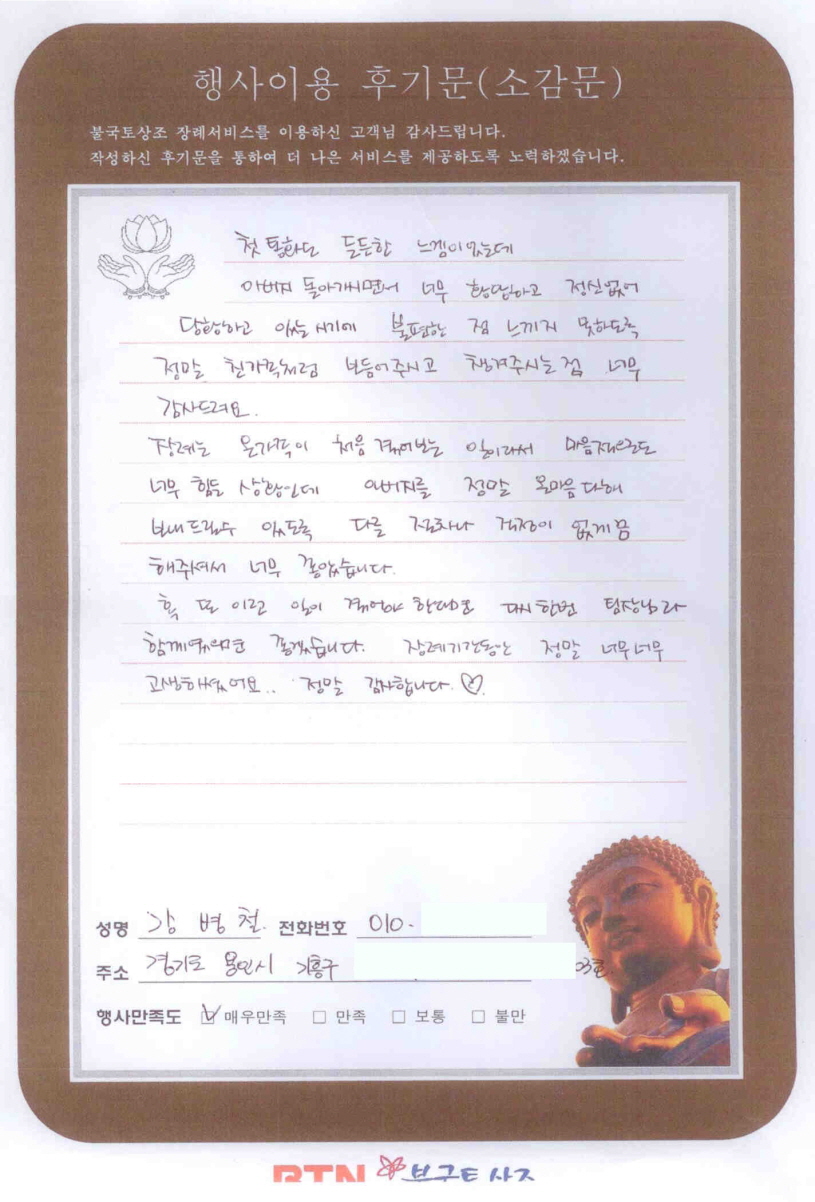 행사이용 후기문(소감문)
불국토상조 장례서비스를 이용하신 고객님 감사드립니다.
작성하신 후기문을 통하여 더 나은 서비스를 제공하도록 노력하겠습니다.
첫 통화도 든든한 느낌이었는데
아버지 돌아가시면서 너무 황망하고 정신없어
당황하고 있는 시기에 불편한 점 느끼지 못하도록
정말 친가족처럼 보듬어주시고 챙겨주시는 점 너무
감사드려요.
장례는 온가족이 처음 겪어보는 일이라서 마음적으로도
너무 힘든 상황인데 아버지를 정말 온마음 다해
보내드릴수 있도록 다른 걱정이 없게끔
해주셔서 너무 좋았습니다.
혹 또 이런 일이 겪어야 한다면 다시한번 팀장님과
함께였으면 좋겠습니다. 장례기간동안 정말 너무너무
고생하셨어요.. 정말 감사합니다. ♡
성명 강병철 전화번호 010-
주소 경기도 용인시 기흥구 03호
행사만족도 ☑ 매우만족 □ 만족 □ 보통 □ 불만
BTN 불국토 상조